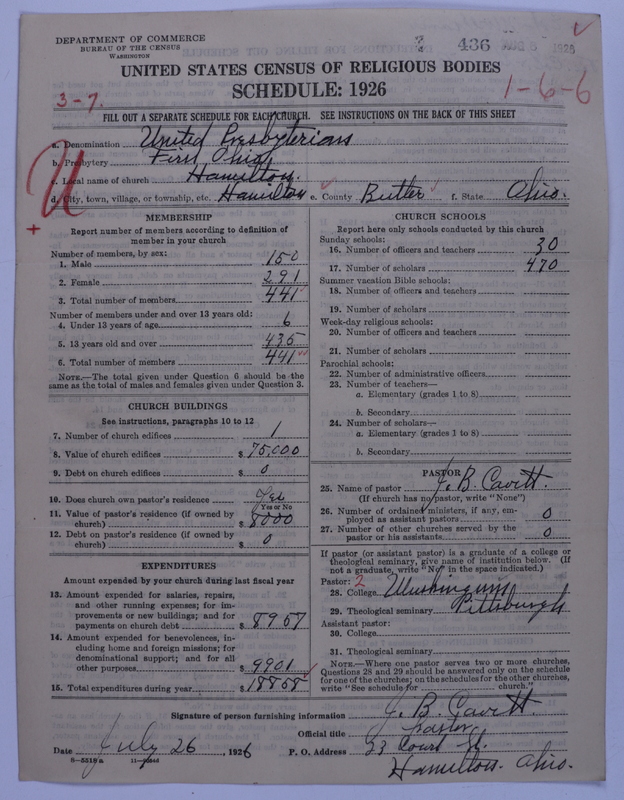 DEPARTMENT OF COMMERCE
BUREAU OF THE CENSUS
WASHINGTON
436 1926
UNITED STATES CENSUS OF RELIGIOUS BODIES
SCHEDULE: 1926
3-7.
1-6-6
FILL OUT A SEPARATE SCHEDULE FOR EACH CHURCH. SEE INSTRUCTIONS ON THE BACK OF THIS SHEET
U
+
a. Denomination United Presbyterians
b. Presbytery First Ohio
c. Local name of church Hamilton.
d. City, town, village, or township, etc. Hamilton e. County Butler f. State Ohio.
MEMBERSHIP
Report number of members according to definition of
member in your church
Number of members, by sex:
1. Male 150
2. Female 291
3. Total number of members 441
Number of members under and over 13 years old:
4. Under 13 years of age 6
5. 13 years old and over 435
6. Total number of members 441
NOTE.—The total given under Question 6 should be the
same as the total of males and females given under Question 3.
CHURCH BUILDINGS
See instructions, paragraphs 10 to 12
7. Number of church edifices 1
8. Value of church edifices $ 75,000
9. Debt on church edifices $ 0
10. Does church own pastor's residence Yes
Yes or No
11. Value of pastor's residence (if owned by
church) $ 8000
12. Debt on pastor's residence (if owned by
church) $ 0
EXPENDITURES
Amount expended by your church during last fiscal year
13. Amount expended for salaries, repairs,
and other running expenses; for im-
provements or new buildings; and for
payments on church debt $ 8957
14. Amount expended for benevolences, in-
cluding home and foreign missions; for
denominational support; and for all
other purposes $ 9901
15. Total expenditures during year $ 18858
CHURCH SCHOOLS
Report here only schools conducted by this church
Sunday schools:
16. Number of officers and teachers 30
17. Number of scholars 470
Summer vacation Bible schools:
18. Number of officers and teachers
19. Number of scholars
Week-day religious schools:
20. Number of officers and teachers
21. Number of scholars
Parochial schools:
22. Number of administrative officers
23. Number of teachers—
a. Elementary (grades 1 to 8)
b. Secondary
24. Number of scholars—
a. Elementary (grades 1 to 8)
b. Secondary
PASTOR
25. Name of pastor J. B. Cavitt.
(If church has no pastor, write "None")
26. Number of ordained ministers, if any, em-
ployed as assistant pastors 0
27. Number of other churches served by the
pastor or his assistants 0
If pastor (or assistant pastor) is a graduate of a college or
theological seminary, give name of institution below. (If
not a graduate, write "No" in the space indicated.)
Pastor: 2
28. College Muskingum
29. Theological seminary Pittsburgh
Assistant pastor:
30. College
31. Theological seminary
NOTE.—Where one pastor serves two or more churches,
Questions 28 and 29 should be answered only on the schedule
for one of the churches; on the schedules for the other churches,
write "See schedule for church."
Signature of person furnishing information J. B. Cavitt.
Official title pastor
Date July 26, 1926 P. O. Address 23 Court St.
Hamilton Ohio.
8-5518a